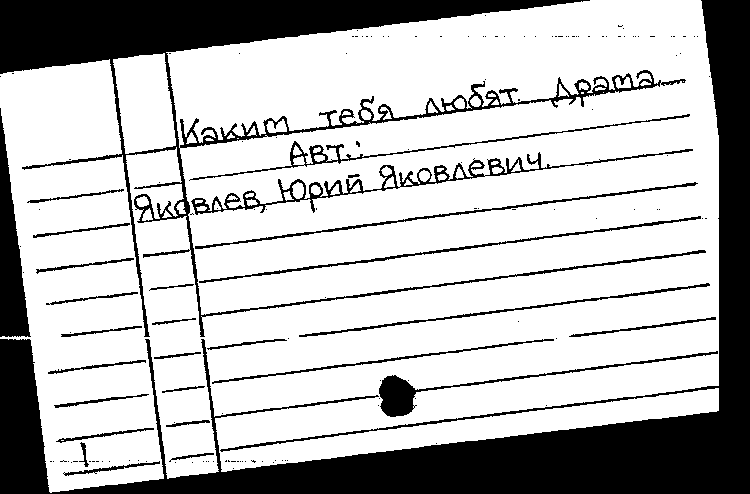 Каким тебя любят. Драма.
Авт.:
Яковлев, Юрий Яковлевич.